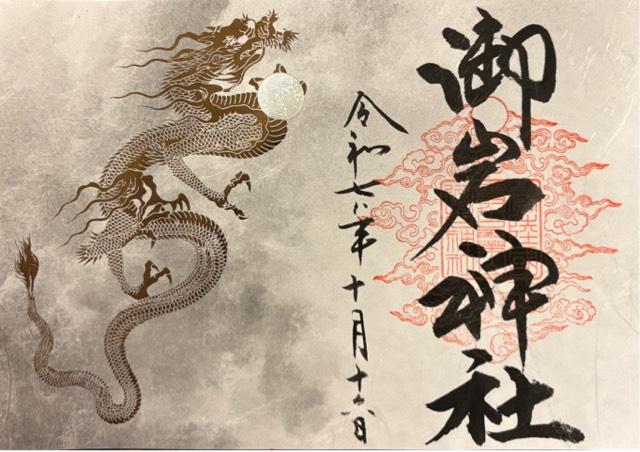 御岩神社
令和七年十月十六日